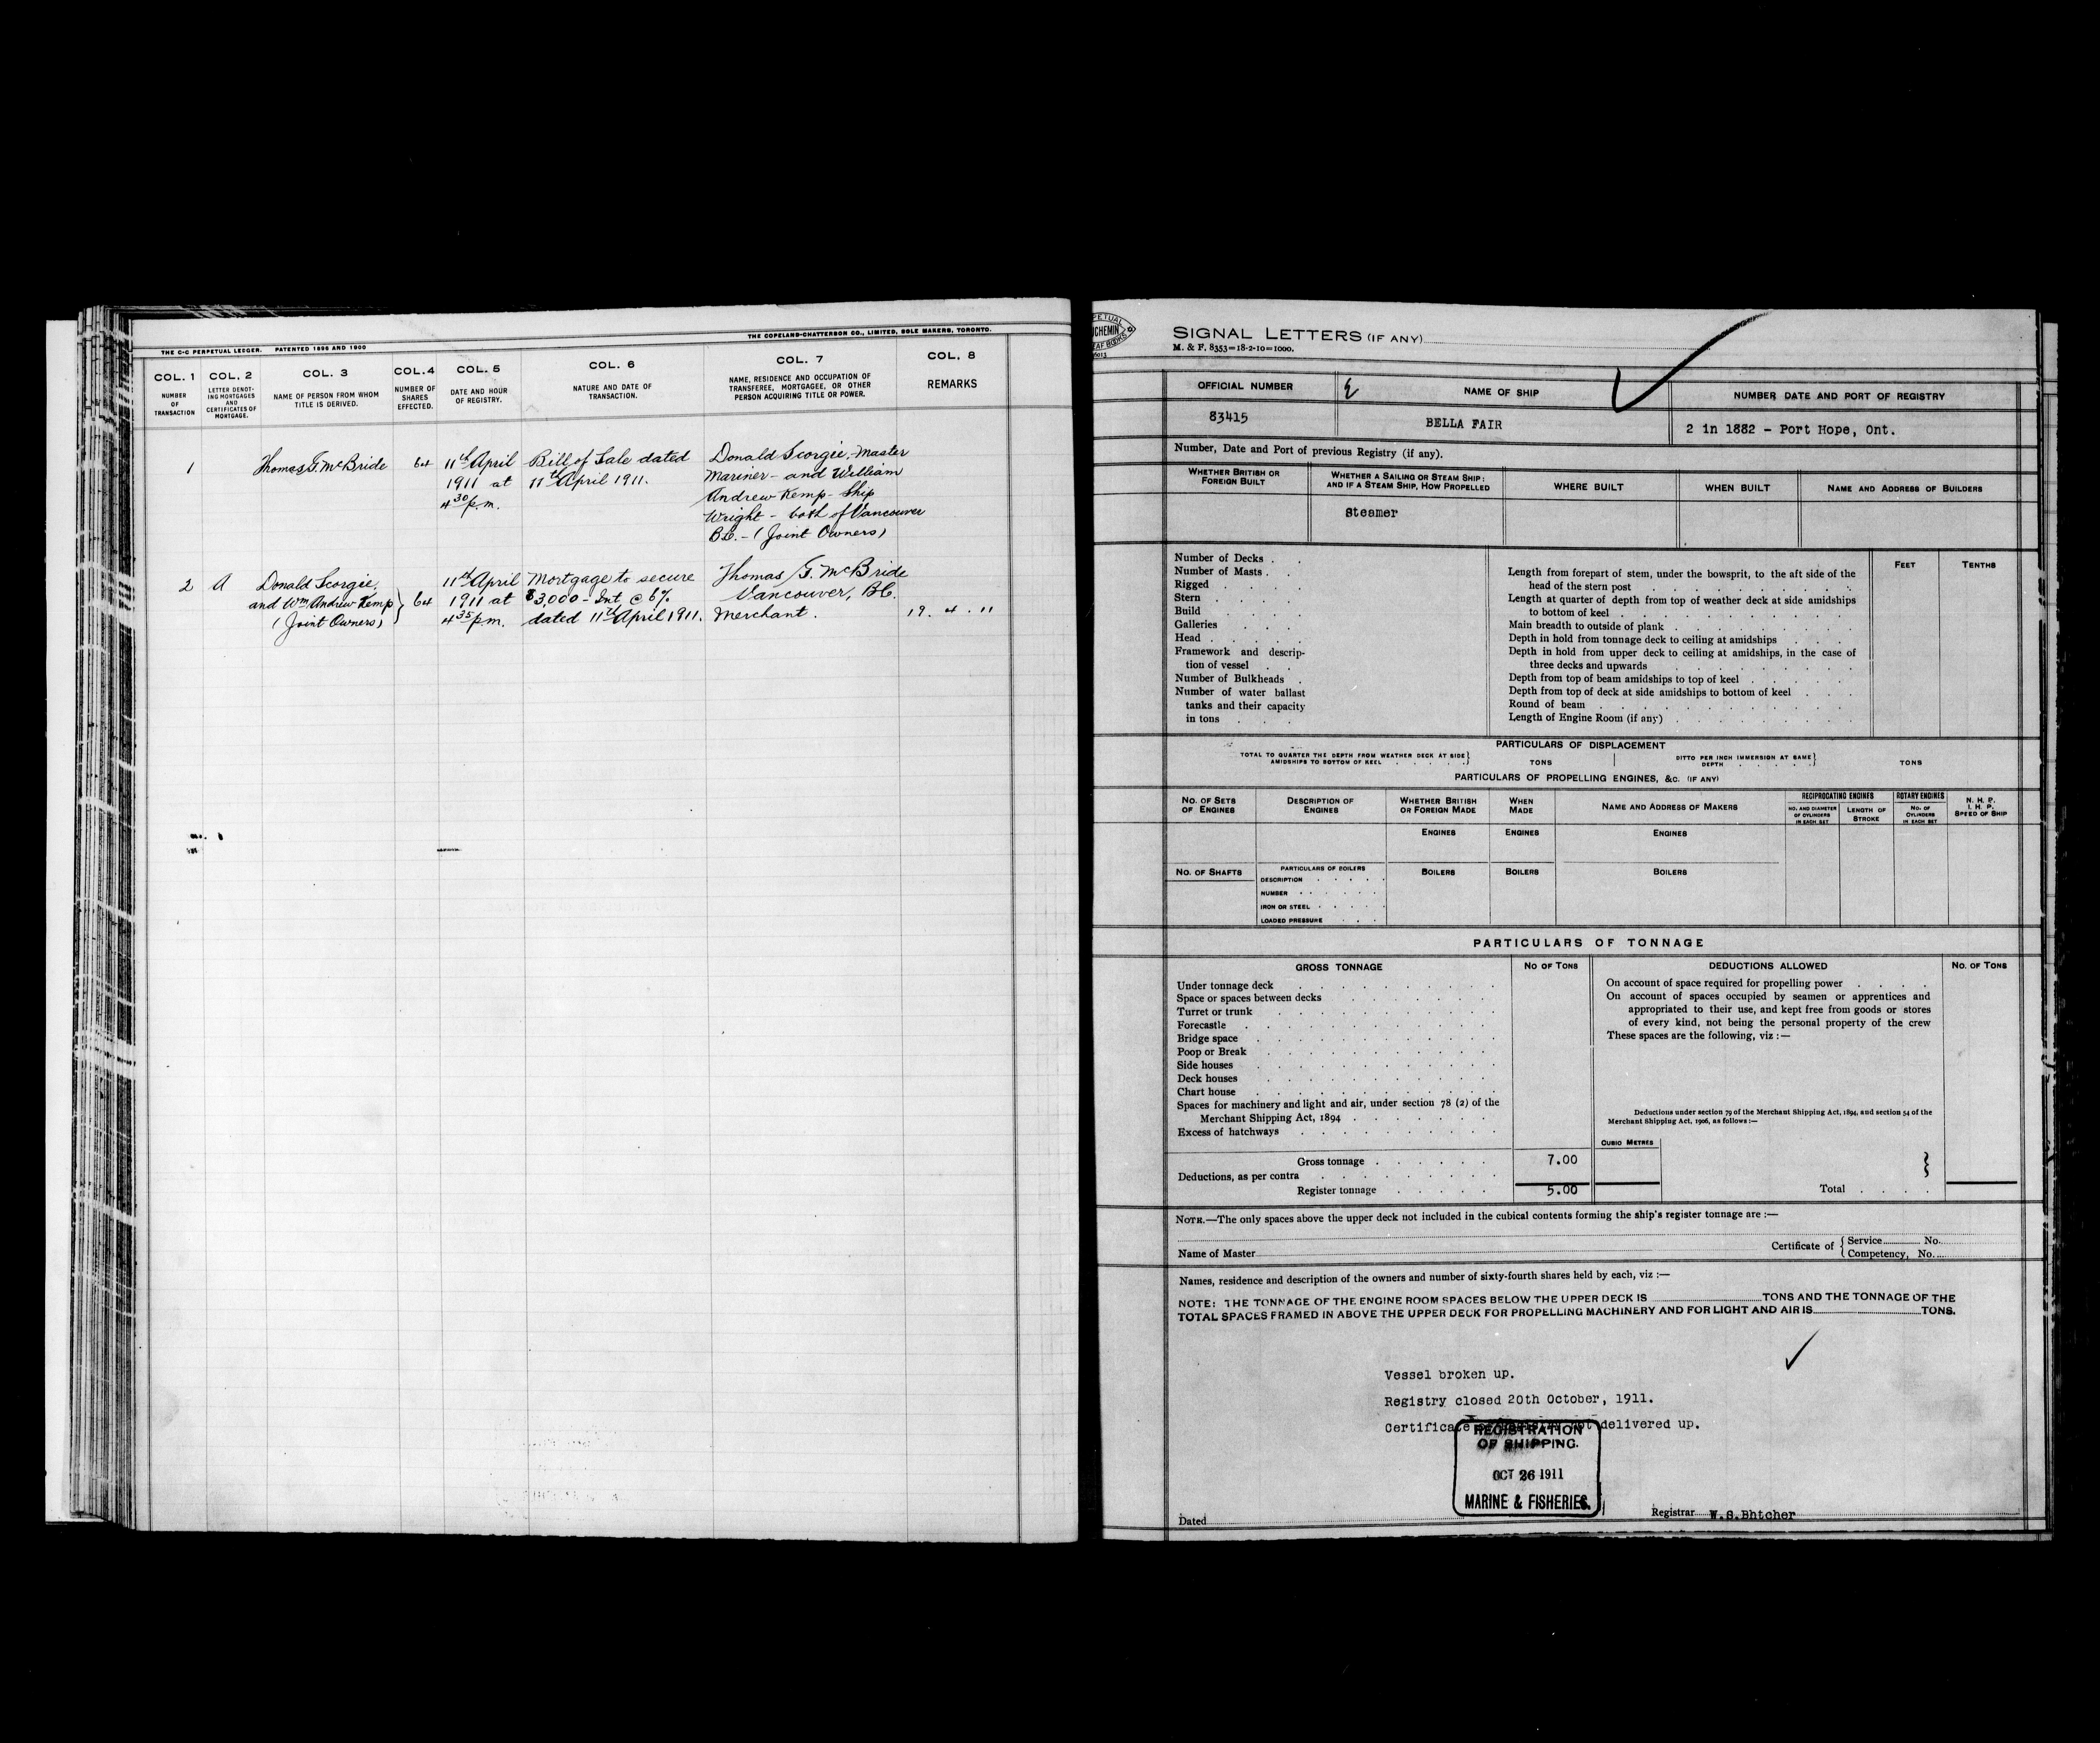 THE C-C PERPETUAL LEDGER. PATENTED 1896 AND 1900
THE COPELAND-CHATTERSON CO., LIMITED, SOLE MAKERS, TORONTO.
COL. 1
NUMBER
OF
TRANSACTION
COL. 2
LETTER DENOT-
ING MORTGAGES
AND
CERTIFICATES OF
MORTGAGE.
COL. 3
NAME OF PERSON FROM WHOM
TITLE IS DERIVED.
COL. 4
NUMBER OF
SHARES
EFFECTED.
COL. 5
DATE AND HOUR
OF REGISTRY.
COL. 6
NATURE AND DATE OF
TRANSACTION.
COL. 7
NAME, RESIDENCE AND OCCUPATION OF
TRANSFEREE, MORTGAGEE, OR OTHER
PERSON ACQUIRING TITLE OR POWER.
COL. 8
REMARKS
1
Thomas F. McBride
64
11th April
1911 at
4 30 p.m.
Bill of Sale dated
11th April 1911.
Donald Scorgie, Master
Mariner - and William
Andrew Kemp - Ship
Wright - both of Vancouver
B.C. - (Joint Owners)
2
A
Donald Scorgie,
and Wm Andrew Kemp
(Joint Owners)
64
11th April
1911 at
4 35 p.m.
Mortgage to secure
$3,000 - Int @ 6%
dated 11th April 1911.
Thomas F. McBride
Vancouver, B.C.
Merchant.
19. 4. 11
SIGNAL LETTERS (IF ANY)
M. & F. 8353=18-2-10=1000.
OFFICIAL NUMBER
83415
NAME OF SHIP
BELLA FAIR
NUMBER DATE AND PORT OF REGISTRY
2 in 1882 - Port Hope, Ont.
Number, Date and Port of previous Registry (if any).
WHETHER BRITISH OR
FOREIGN BUILT
WHETHER A SAILING OR STEAM SHIP:
AND IF A STEAM SHIP, HOW PROPELLED
Steamer
WHERE BUILT
WHEN BUILT
NAME AND ADDRESS OF BUILDERS
Number of Decks . .
Number of Masts . .
Rigged . . .
Stern . . .
Build . . .
Galleries . . .
Head . . . .
Framework and descrip-
tion of vessel . .
Number of Bulkheads .
Number of water ballast
tanks and their capacity
in tons . . .
FEET
TENTHS
Length from forepart of stem, under the bowsprit, to the aft side of the
head of the stern post
Length at quarter of depth from top of weather deck at side amidships
to bottom of keel
Main breadth to outside of plank
Depth in hold from tonnage deck to ceiling at amidships
Depth in hold from upper deck to ceiling at amidships, in the case of
three decks and upwards
Depth from top of beam amidships to top of keel
Depth from top of deck at side amidships to bottom of keel
Round of beam
Length of Engine Room (if any)
PARTICULARS OF DISPLACEMENT
TOTAL TO QUARTER THE DEPTH FROM WEATHER DECK AT SIDE
AMIDSHIPS TO BOTTOM OF KEEL
TONS
DITTO PER INCH IMMERSION AT SAME
DEPTH
TONS
PARTICULARS OF PROPELLING ENGINES, &C. (IF ANY)
NO. OF SETS
OF ENGINES
DESCRIPTION OF
ENGINES
WHETHER BRITISH
OR FOREIGN MADE
WHEN
MADE
NAME AND ADDRESS OF MAKERS
RECIPROCATING ENGINES
NO. AND DIAMETER
OF CYLINDERS
IN EACH SET
LENGTH OF
STROKE
ROTARY ENGINES
NO. OF
CYLINDERS
IN EACH SET
N. H. P.
I. H. P.
SPEED OF SHIP
ENGINES
ENGINES
ENGINES
NO. OF SHAFTS
PARTICULARS OF BOILERS
DESCRIPTION
NUMBER
IRON OR STEEL
LOADED PRESSURE
BOILERS
BOILERS
BOILERS
PARTICULARS OF TONNAGE
GROSS TONNAGE
NO OF TONS
DEDUCTIONS ALLOWED
NO. OF TONS
Under tonnage deck
Space or spaces between decks
Turret or trunk
Forecastle
Bridge space
Poop or Break
Side houses
Deck houses
Chart house
Spaces for machinery and light and air, under section 78 (2) of the
Merchant Shipping Act, 1894
Excess of hatchways
Gross tonnage
7.00
Deductions, as per contra
Register tonnage
5.00
On account of space required for propelling power
On account of spaces occupied by seamen or apprentices and
appropriated to their use, and kept free from goods or stores
of every kind, not being the personal property of the crew
These spaces are the following, viz :—
Deductions under section 79 of the Merchant Shipping Act, 1894, and section 54 of the
Merchant Shipping Act, 1906, as follows :—
CUBIC METRES
Total
NOTE.—The only spaces above the upper deck not included in the cubical contents forming the ship's register tonnage are :—
Name of Master
Certificate of
Service No.
Competency, No.
Names, residence and description of the owners and number of sixty-fourth shares held by each, viz :—
NOTE: THE TONNAGE OF THE ENGINE ROOM SPACES BELOW THE UPPER DECK IS TONS AND THE TONNAGE OF THE
TOTAL SPACES FRAMED IN ABOVE THE UPPER DECK FOR PROPELLING MACHINERY AND FOR LIGHT AND AIR IS TONS.
Vessel broken up.
Registry closed 20th October, 1911.
Certificate of Registry not delivered up.
REGISTRATION
OF SHIPPING.
OCT 26 1911
MARINE & FISHERIES.
Dated
Registrar W.S.Bhtcher